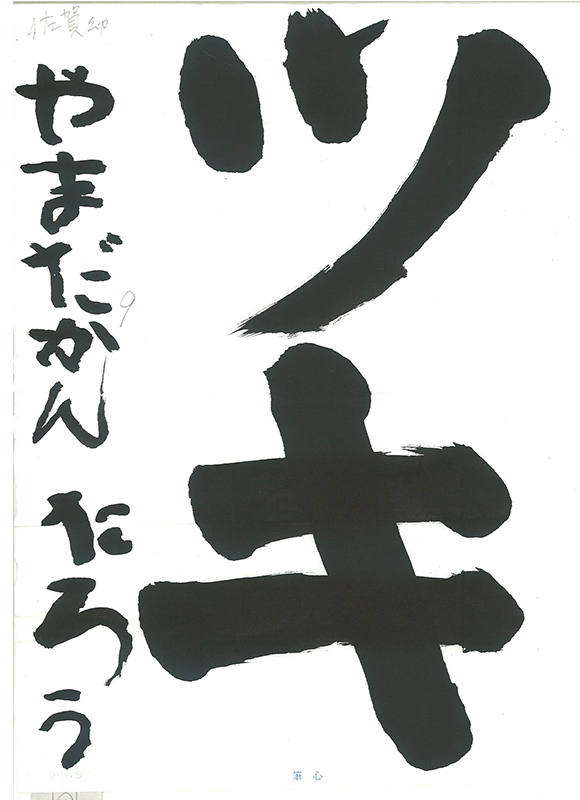 ツキ
佐賀幼
やまだかんたろう
9
筆心